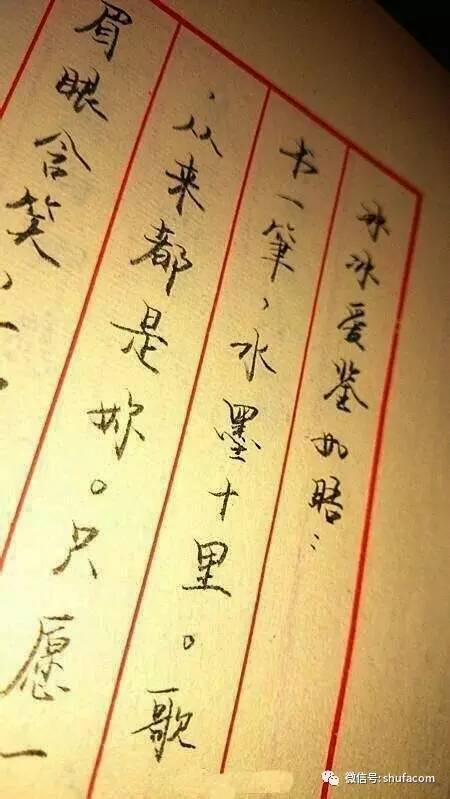 冰冰爱鉴如晤：
书一筆，水墨十里。歌
，从来都是妳。只愿一
眉眼含笑，
微信号: shufacom